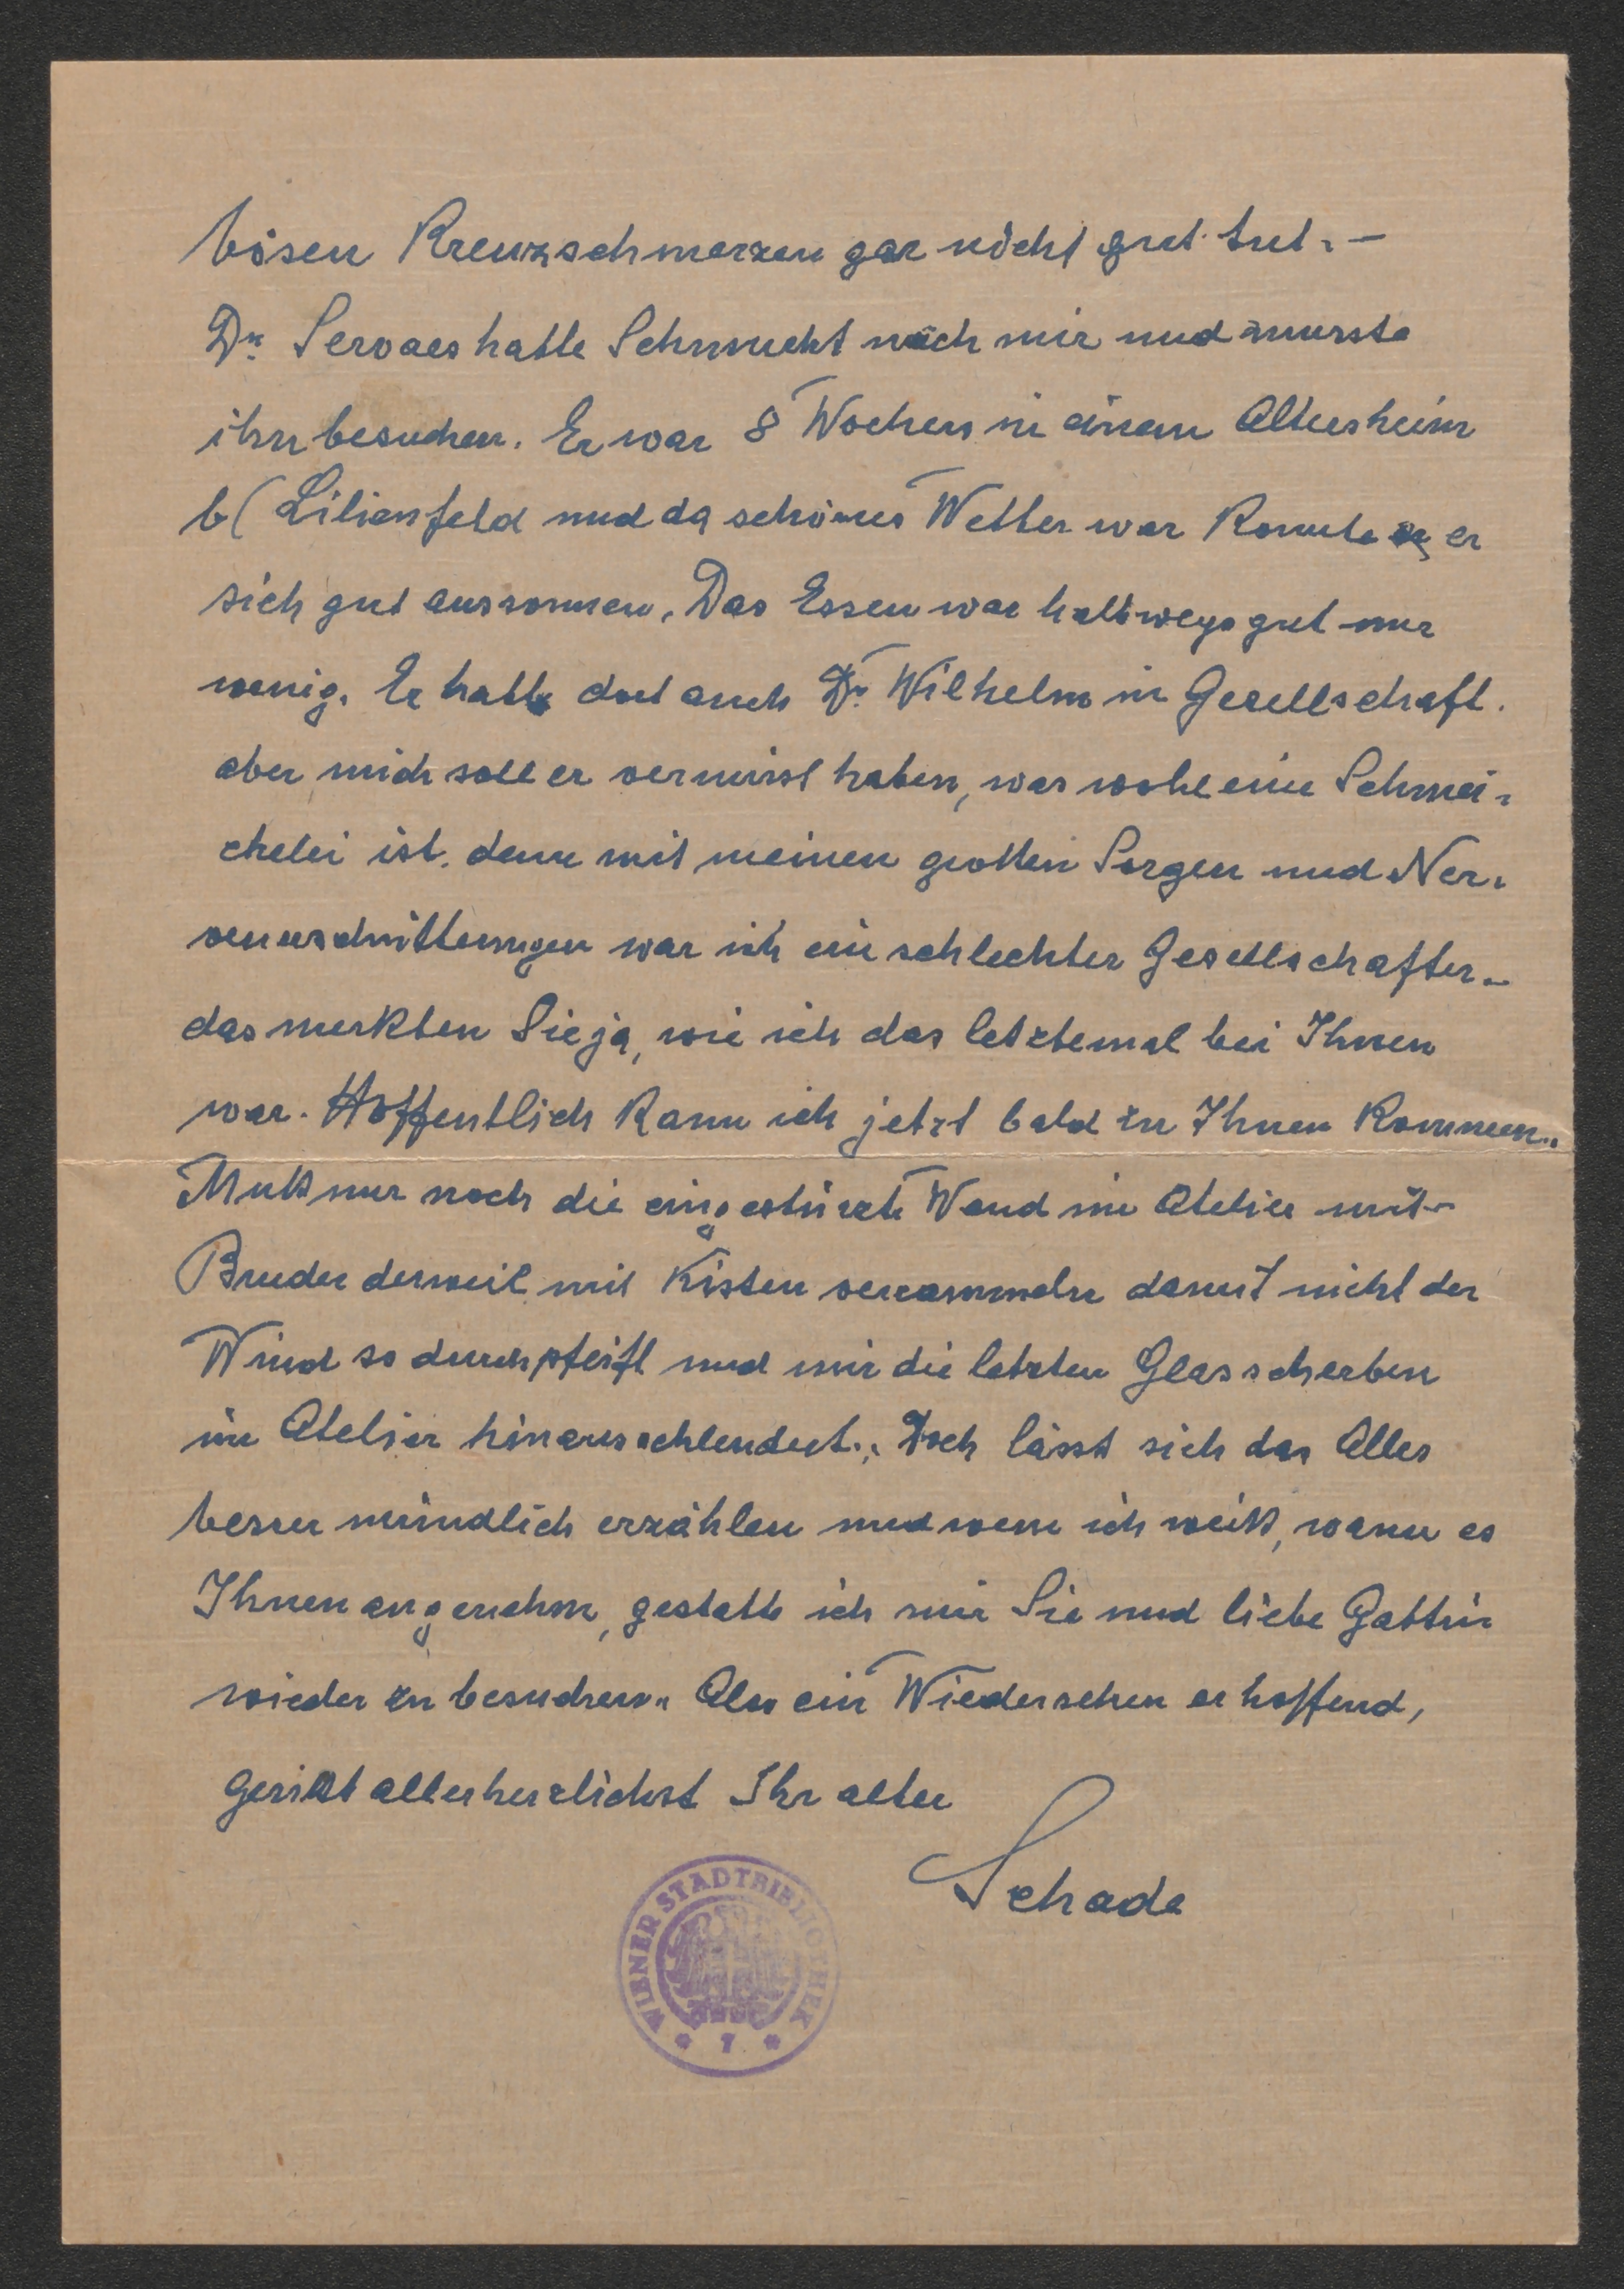 bösen Kreuzschmerzen gar nicht gut tut. –
Dr. Servaes hatte Sehnsucht nach mir und musste
ihn besuchen. Er war 8 Wochen in einem Altersheim
b/ Lilienfeld und da schönes Wetter war konnte er
sich gut aussonnen. Das Essen war halbwegs gut nur
wenig. Er hatte dort auch Dr. Wilhelm in Gesellschaft.
aber mich soll er vermisst haben, was wohl eine Schmei-
chelei ist. denn mit meinen großen Sorgen und Ner-
venerschütterungen war ich ein schlechter Gesellschafter –
das merkten Sie ja, wie ich das letztemal bei Ihnen
war. Hoffentlich kann ich jetzt bald zu Ihnen kommen.
Muß nur noch die eingestürzte Wand im Atelier mit
Bruder derweil mit Kisten verrammeln damit nicht der
Wind so durchpfeift und mir die letzten Glasscherben
im Atelier hinausschleudert. Doch lässt sich das Alles
besser mündlich erzählen und wenn ich weiß, wann es
Ihnen angenehm, gestatte ich mir Sie und liebe Gattin
wieder zu besuchen. Also ein Wiedersehen erhoffend,
grüßt allerherzlichst Ihr alter
Schade
WIENER STADTBIBLIOTHEK
* 7 *